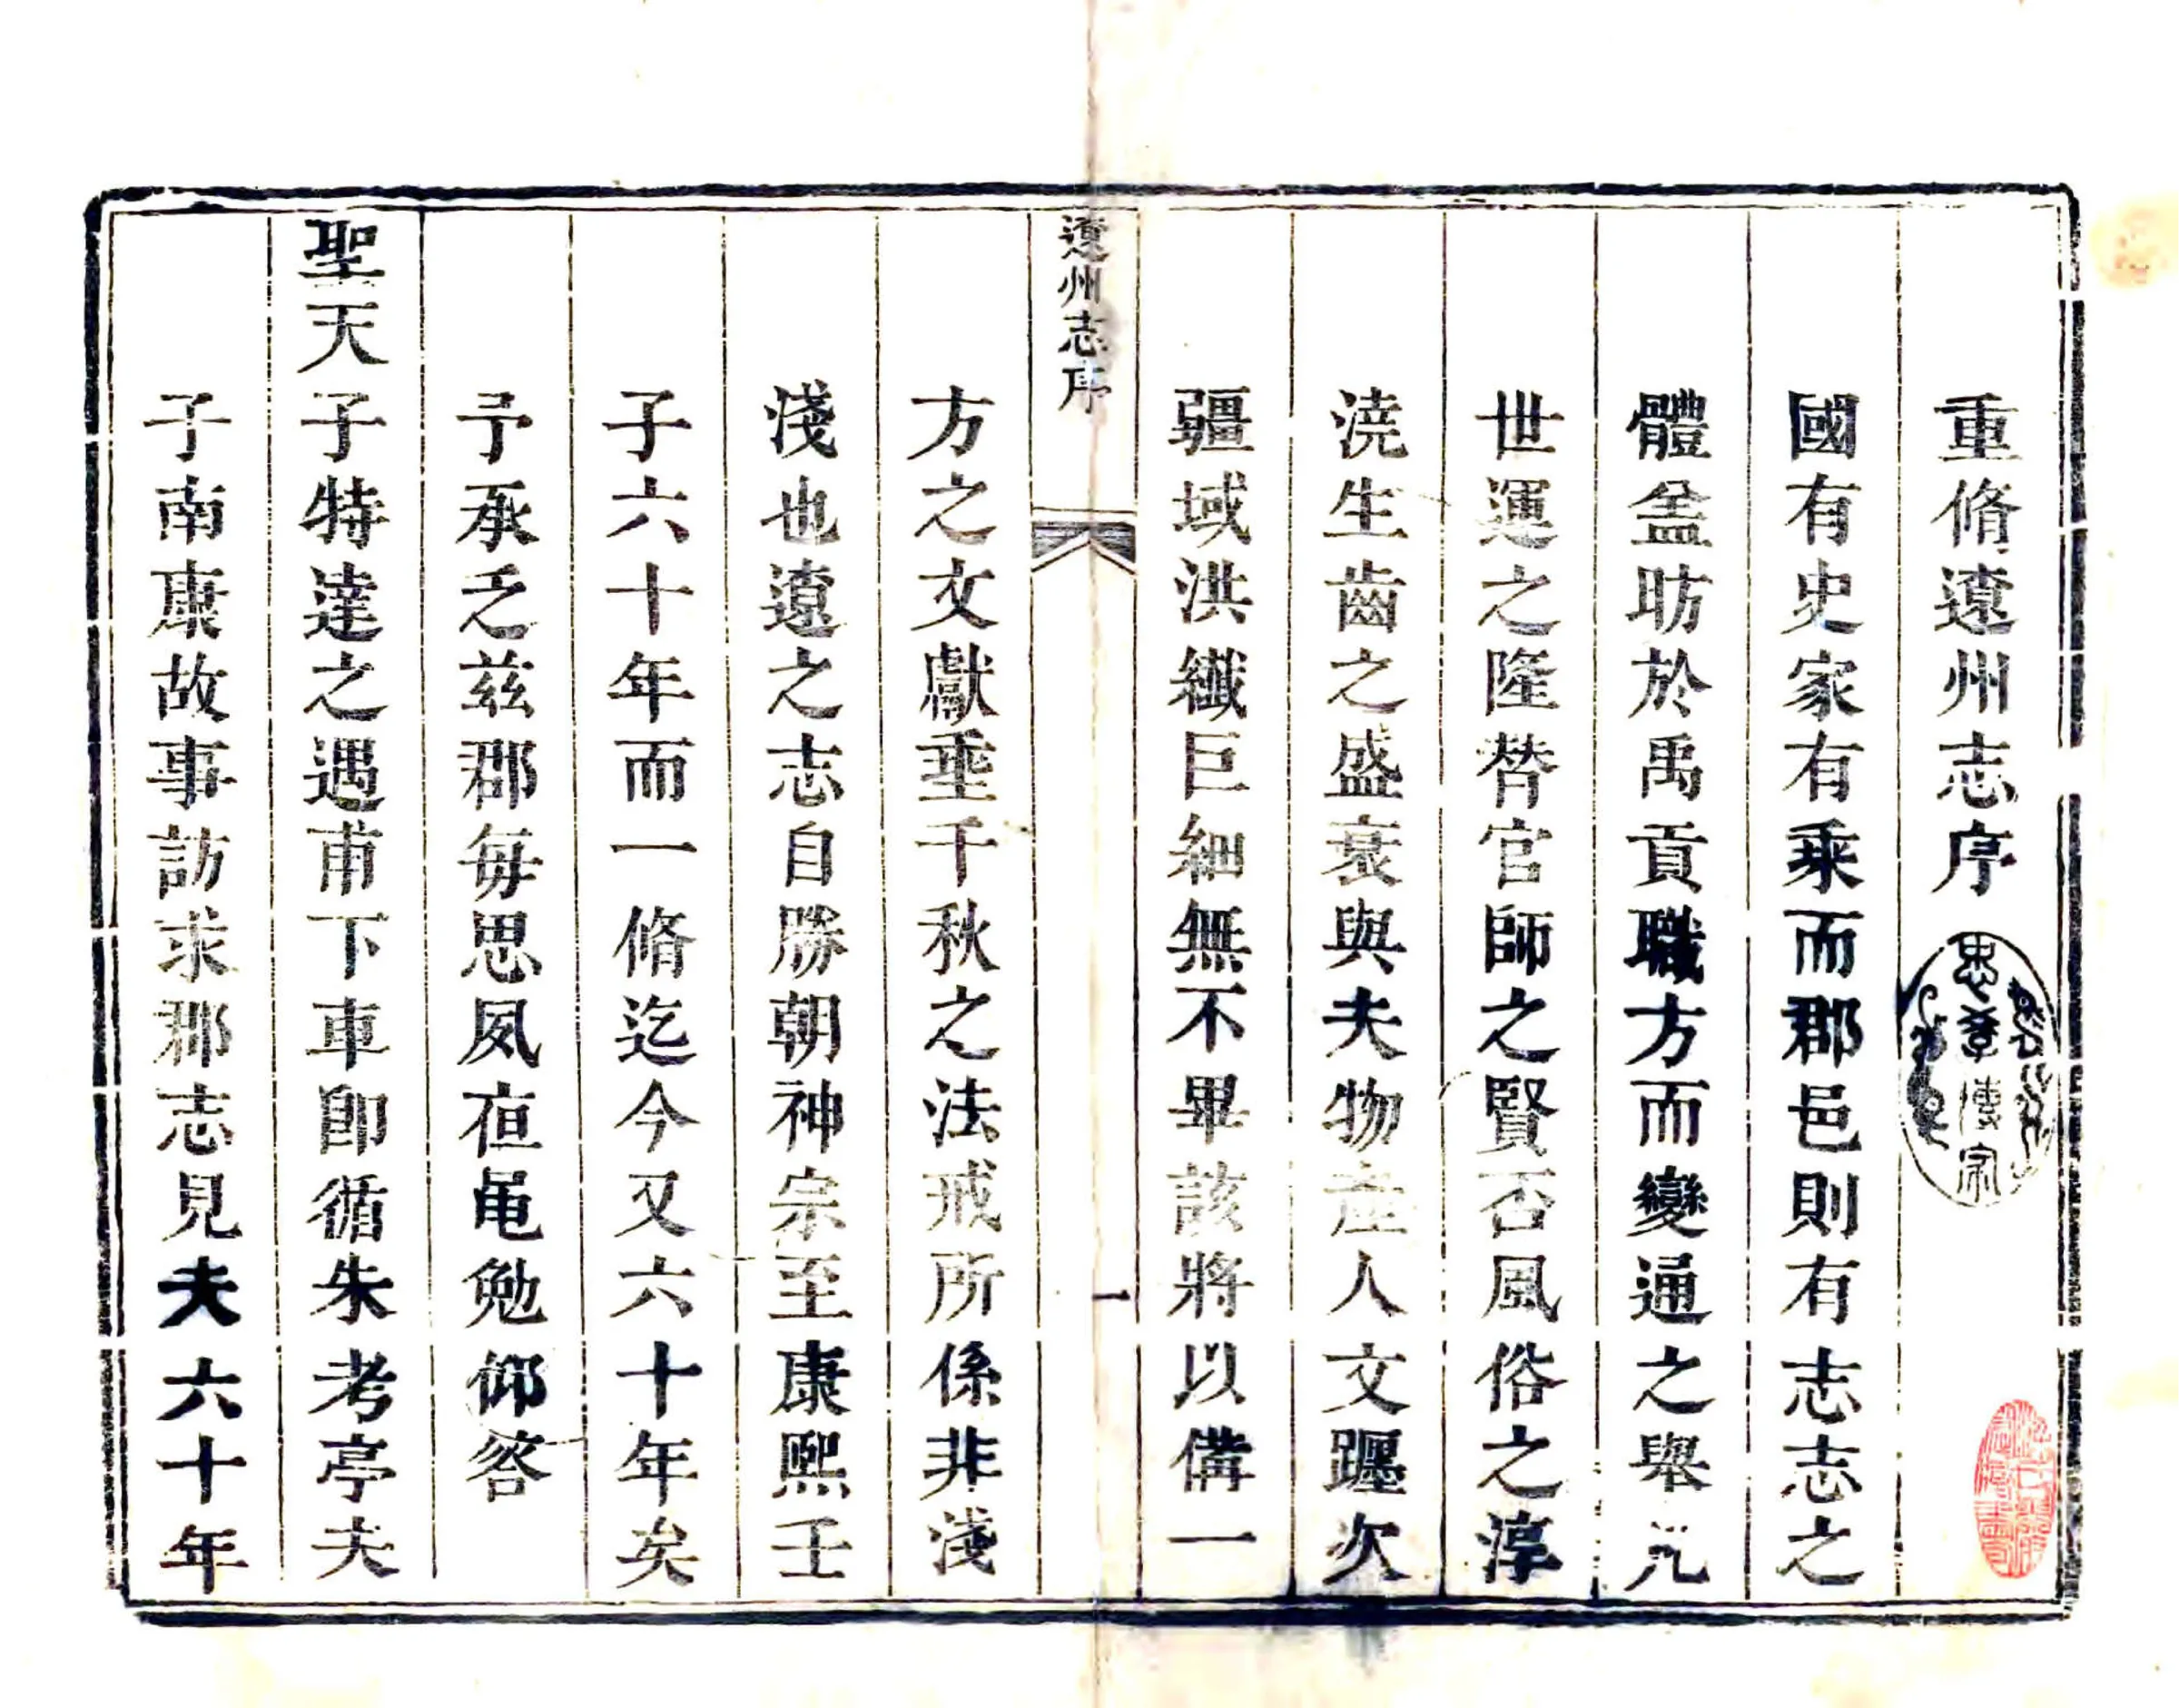 重脩遼州志序
國有史家有乘而郡邑則有志志之
體盖昉於禹貢職方而變通之舉凢
世運之隆替官師之賢否風俗之淳
澆生齒之盛衰與夫物產人文躔次
疆域洪纖巨細無不畢該將以備一
遼州志序
一
方之文獻垂千秋之法戒所係非淺
淺也遼之志自勝朝神宗至康熙壬
子六十年而一脩迄今又六十年矣
予承乏兹郡每思夙夜黽勉仰答
聖天子特達之遇甫下車即循朱考亭夫
子南康故事訪求郡志見夫六十年